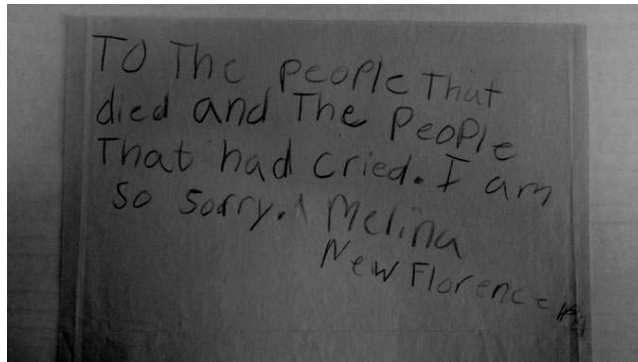 TO The people That
died and The people
That had cried. I am
so sorry. Melina
New Florence